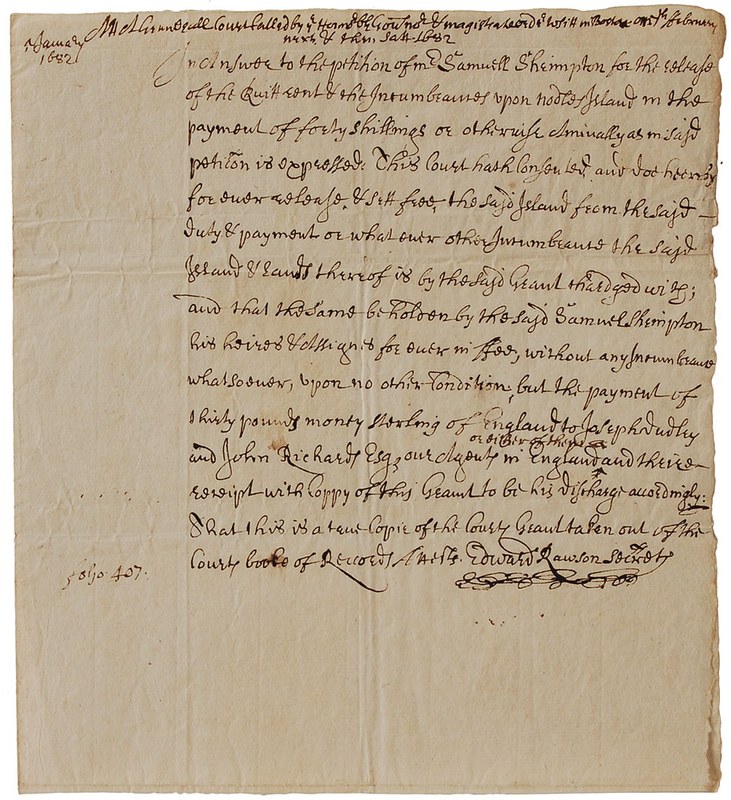 At A Gennerall Court Called by ye Honorble Govnor & magistrates order & Writt in Boston on 7th February
7 January
next & then Satt 1682
1682
In Answer to the petition of mr Samuell Shrimpton for the release
of the Quitt rent & the Incumbrances upon nodles Island in the
payment of forty shillings or otherwise Annually as in said
petition is expressed: This Court hath Consented, and doe heereby
for ever release, & sett free, the said Island from the said
duty & payment or what ever other Incumbrance the said
Island & lands thereof is by the said Grant chardged with;
and that the same be holden by the said Samuel Shrimpton
his heires & Assignes for ever in ffee, without any Incumbrance
whatsoever, upon no other Condition, but the payment of
thirty pounds money sterling of England to Joseph Dudley
or either of them
and John Richards Esqrs our Agents in England and their
receipt with Coppy of this Grant to be his discharge accordingly:
That this is a true Copie of the Courts Grant taken out of the
Courts booke of Records Attests. Edward Rawson Secrety
folio. 407.